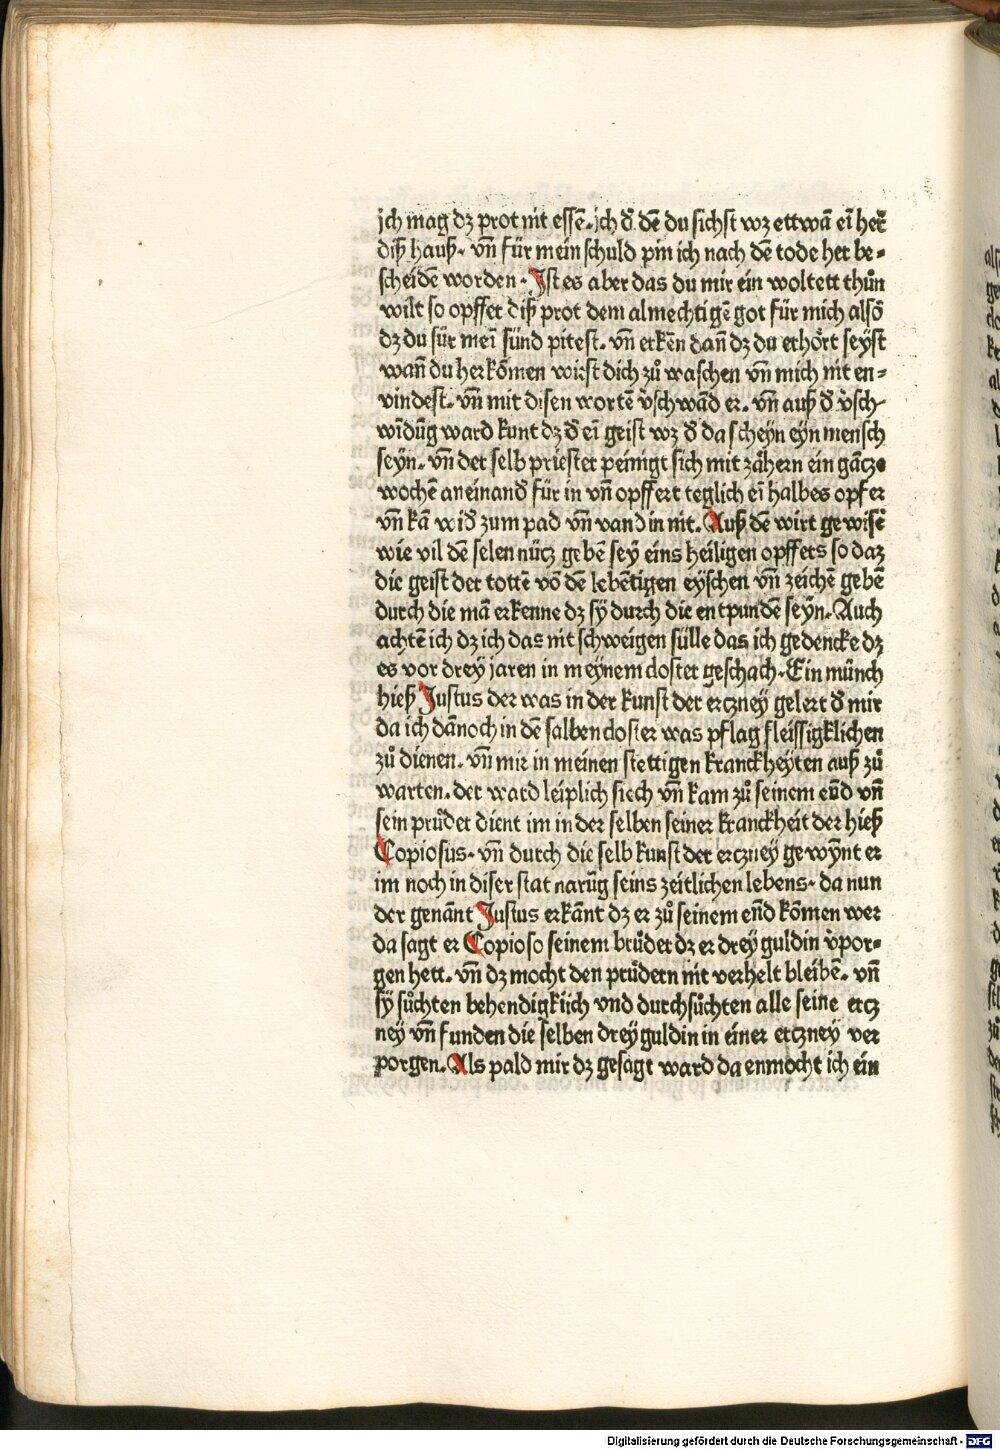 jch mag dʒ prot nit essē. jch d̄. dē du sichst wʒ ettwā eī her
diß hauß. vn̄ für mein schuld pin ich nach dē tode her be⸗
scheidē worden. Ist es aber das du mir ein woltett thůn
wilt so opffer diß prot dem almechtigē got für mich alsō
dʒ du für meī sünd pitest. vn̄ erkēn dan̄ dʒ du erhört seyst
wan̄ du her kōmen wirst dich zů waschen vn̄ mich nit en⸗
vindest. vn̄ mit disen wortē v̄schwād er. vn̄ auß d̄ v̄sch⸗
wīdūg ward kunt dʒ d̄ eī geist wʒ d̄ da scheyn eyn mensch
seyn. vn̄ der selb priester peinigt sich mit zähern ein gācze
wochē aneinand̄ für in vn̄ opffert teglich eī halbes opfer
vn̄ kā wid̄ zum pad vn̄ vand in nit. Auß dē wirt gewisē
wie vil dē selen nücz gebē sey eins heiligen opffers so daz
die geist der tottē vō dē lebētigen eyschen vn̄ zeichē gebē
durch die mā erkenne dʒ sy durch die entpundē seyn. Auch
achtē ich dʒ ich das nit schweigen sülle das ich gedencke dʒ
es vor drey jaren in meynem closter geschach. Ein münch
hieß Justus der was in der kunst der erczney gelert d̄ mir
da ich dānoch in dē salben closter was pflag fleissigklichen
zů dienen. vn̄ mir in meinen stettigen kranckheyten auß zů
warten. der ward leiplich siech vn̄ kam zů seinem end vn̄
sein průder dient im in der selben seiner kranckheit der hieß
Copiosus. vn̄ durch die selb kunst der erczney gewynt er
im noch in diser stat narūg seins zeitlichen lebens. da nun
der genānt Justus erkānt dʒ er zů seinem end kōmen wer
da sagt er Copioso seinem brůder dʒ er drey guldin v̄por⸗
gen hett. vn̄ dʒ mocht den prüdern nit verhelt bleibē. vn̄
sy sůchten behendigklich vnd durchsůchten alle seine ercz
ney vn̄ funden die selben drey guldin in einer erczney ver
porgen. Als pald mir dʒ gesagt ward da enmocht ich ein
Digitalisierung gefördert durch die Deutsche Forschungsgemeinschaft - DFG